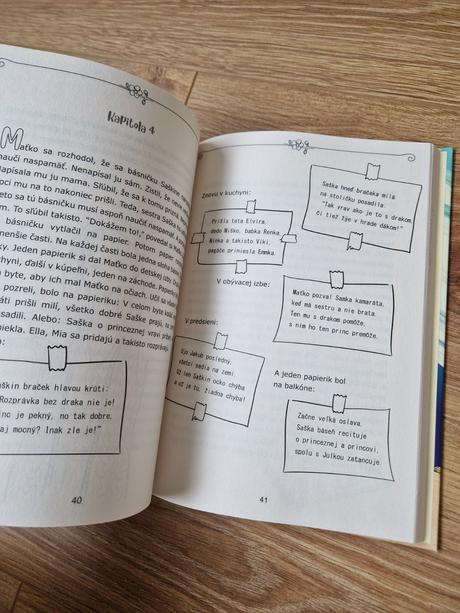 Kapitola 4
Maťko sa rozhodol, že sa básničku Saškine
naučí naspamäť. Nenapísal ju sám. Zistil, že nevie
napísala mu ju mama. Sľúbil, že sa k tomu prizná,
oci mu na to nakoniec prišli. Teda, sestra Saška
eto sa tú básničku musí aspoň naučiť naspamäť. A
To sľúbil takisto. "Dokážem to!," povedal si Maťko
básničku vytlačil na papier. Potom papier
menšie časti. Na každej časti bola jedna sloha
Jeden papierik si dal Maťko do detskej izby.
chyni, ďalší v kúpeľni, jeden na záchode. Papieriky
byte, aby ich mal Maťko na očiach. Učil sa
pozreli, bolo na papieriku: V celom byte
áti prišli milí, všetko dobré Saške prajú, na
sadili. Alebo: Saška o princeznej vraví
iekla. Ella, Mia sa pridajú a takisto rozprávku
škin braček hlavou krúti:
Rozprávka bez draka nie je!
inc je pekný, no tak dobre,
aj mocný? Inak zle je!"
40
Znovu v kuchyni:
Prišla teta Elvíra,
dedo Miško, babka Renka,
Ninka a takisto Viki,
pagáče priniesla Emmka.
Saška hneď bračeka milá
na stoličku posadila:
"Tak vrav ako je to s drakom,
či tiež žije v hrade dákom!"
V obývacej izbe:
Maťko pozval Samka kamaráta,
keď má sestru a nie brata.
Ten mu s drakom pomôže,
s ním ho ten princ premôže.
V predsieni:
Jakub posledný,
všetci sedia na zemi.
Už len Saškin ocko chýba
a už je tu, žiadna chyba!
A jeden papierik bol
na balkóne:
Začne veľká oslava,
Saška báseň recituje
o princeznej a princovi,
spolu s Julkou zatancuje.
41